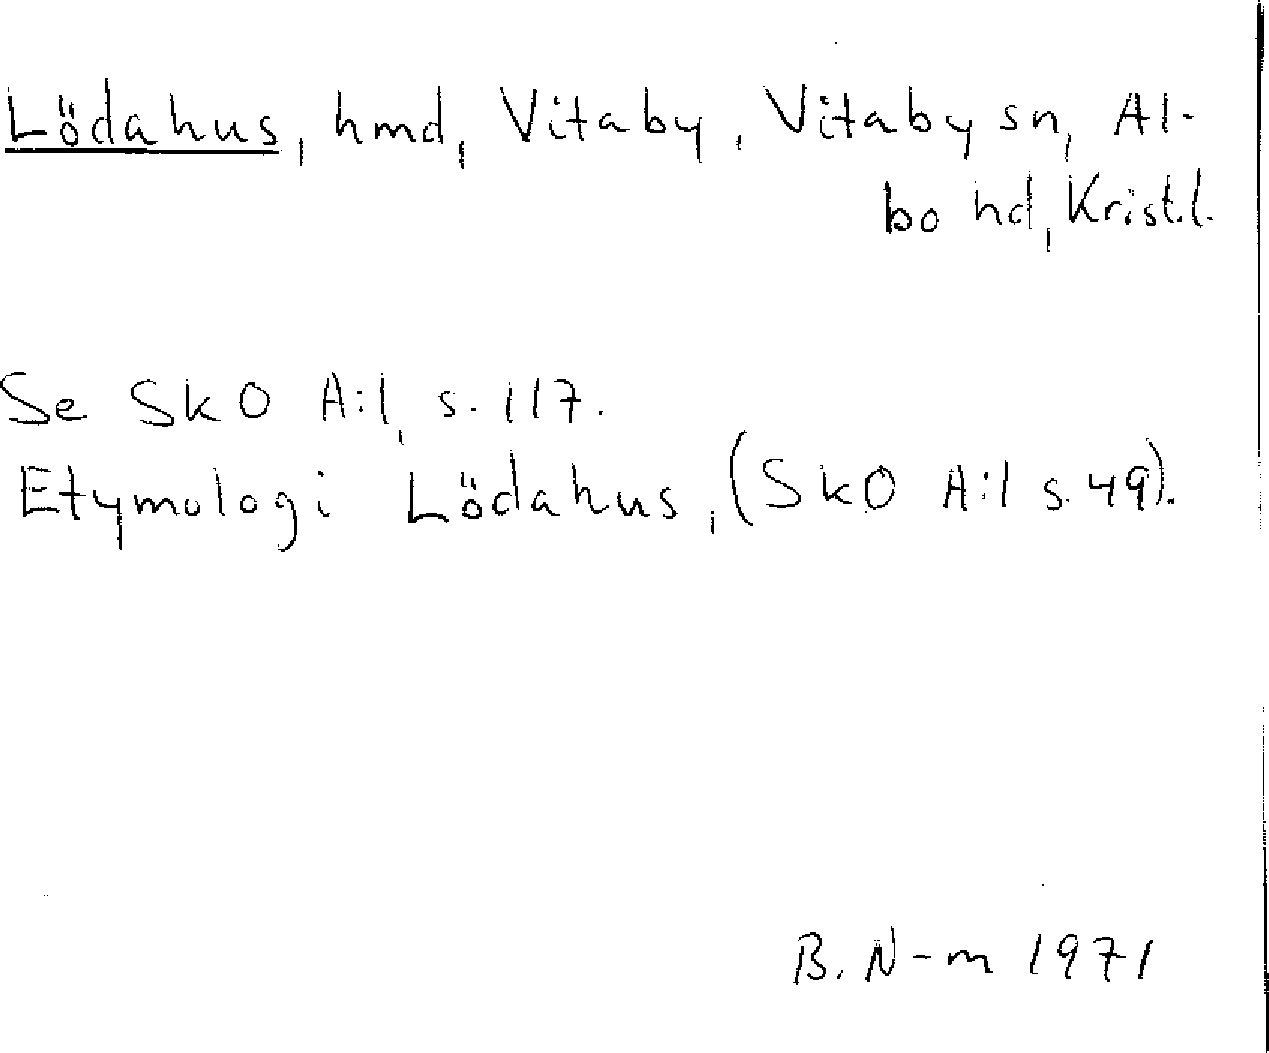 Lödahus, hmd, Vitaby, Vitaby sn, Al-
bo hd, Krist.l.
Se SkO A:1, s. 117.
Etymologi Lödahus, (SkO A:1 s. 49).
B. N-m 1971